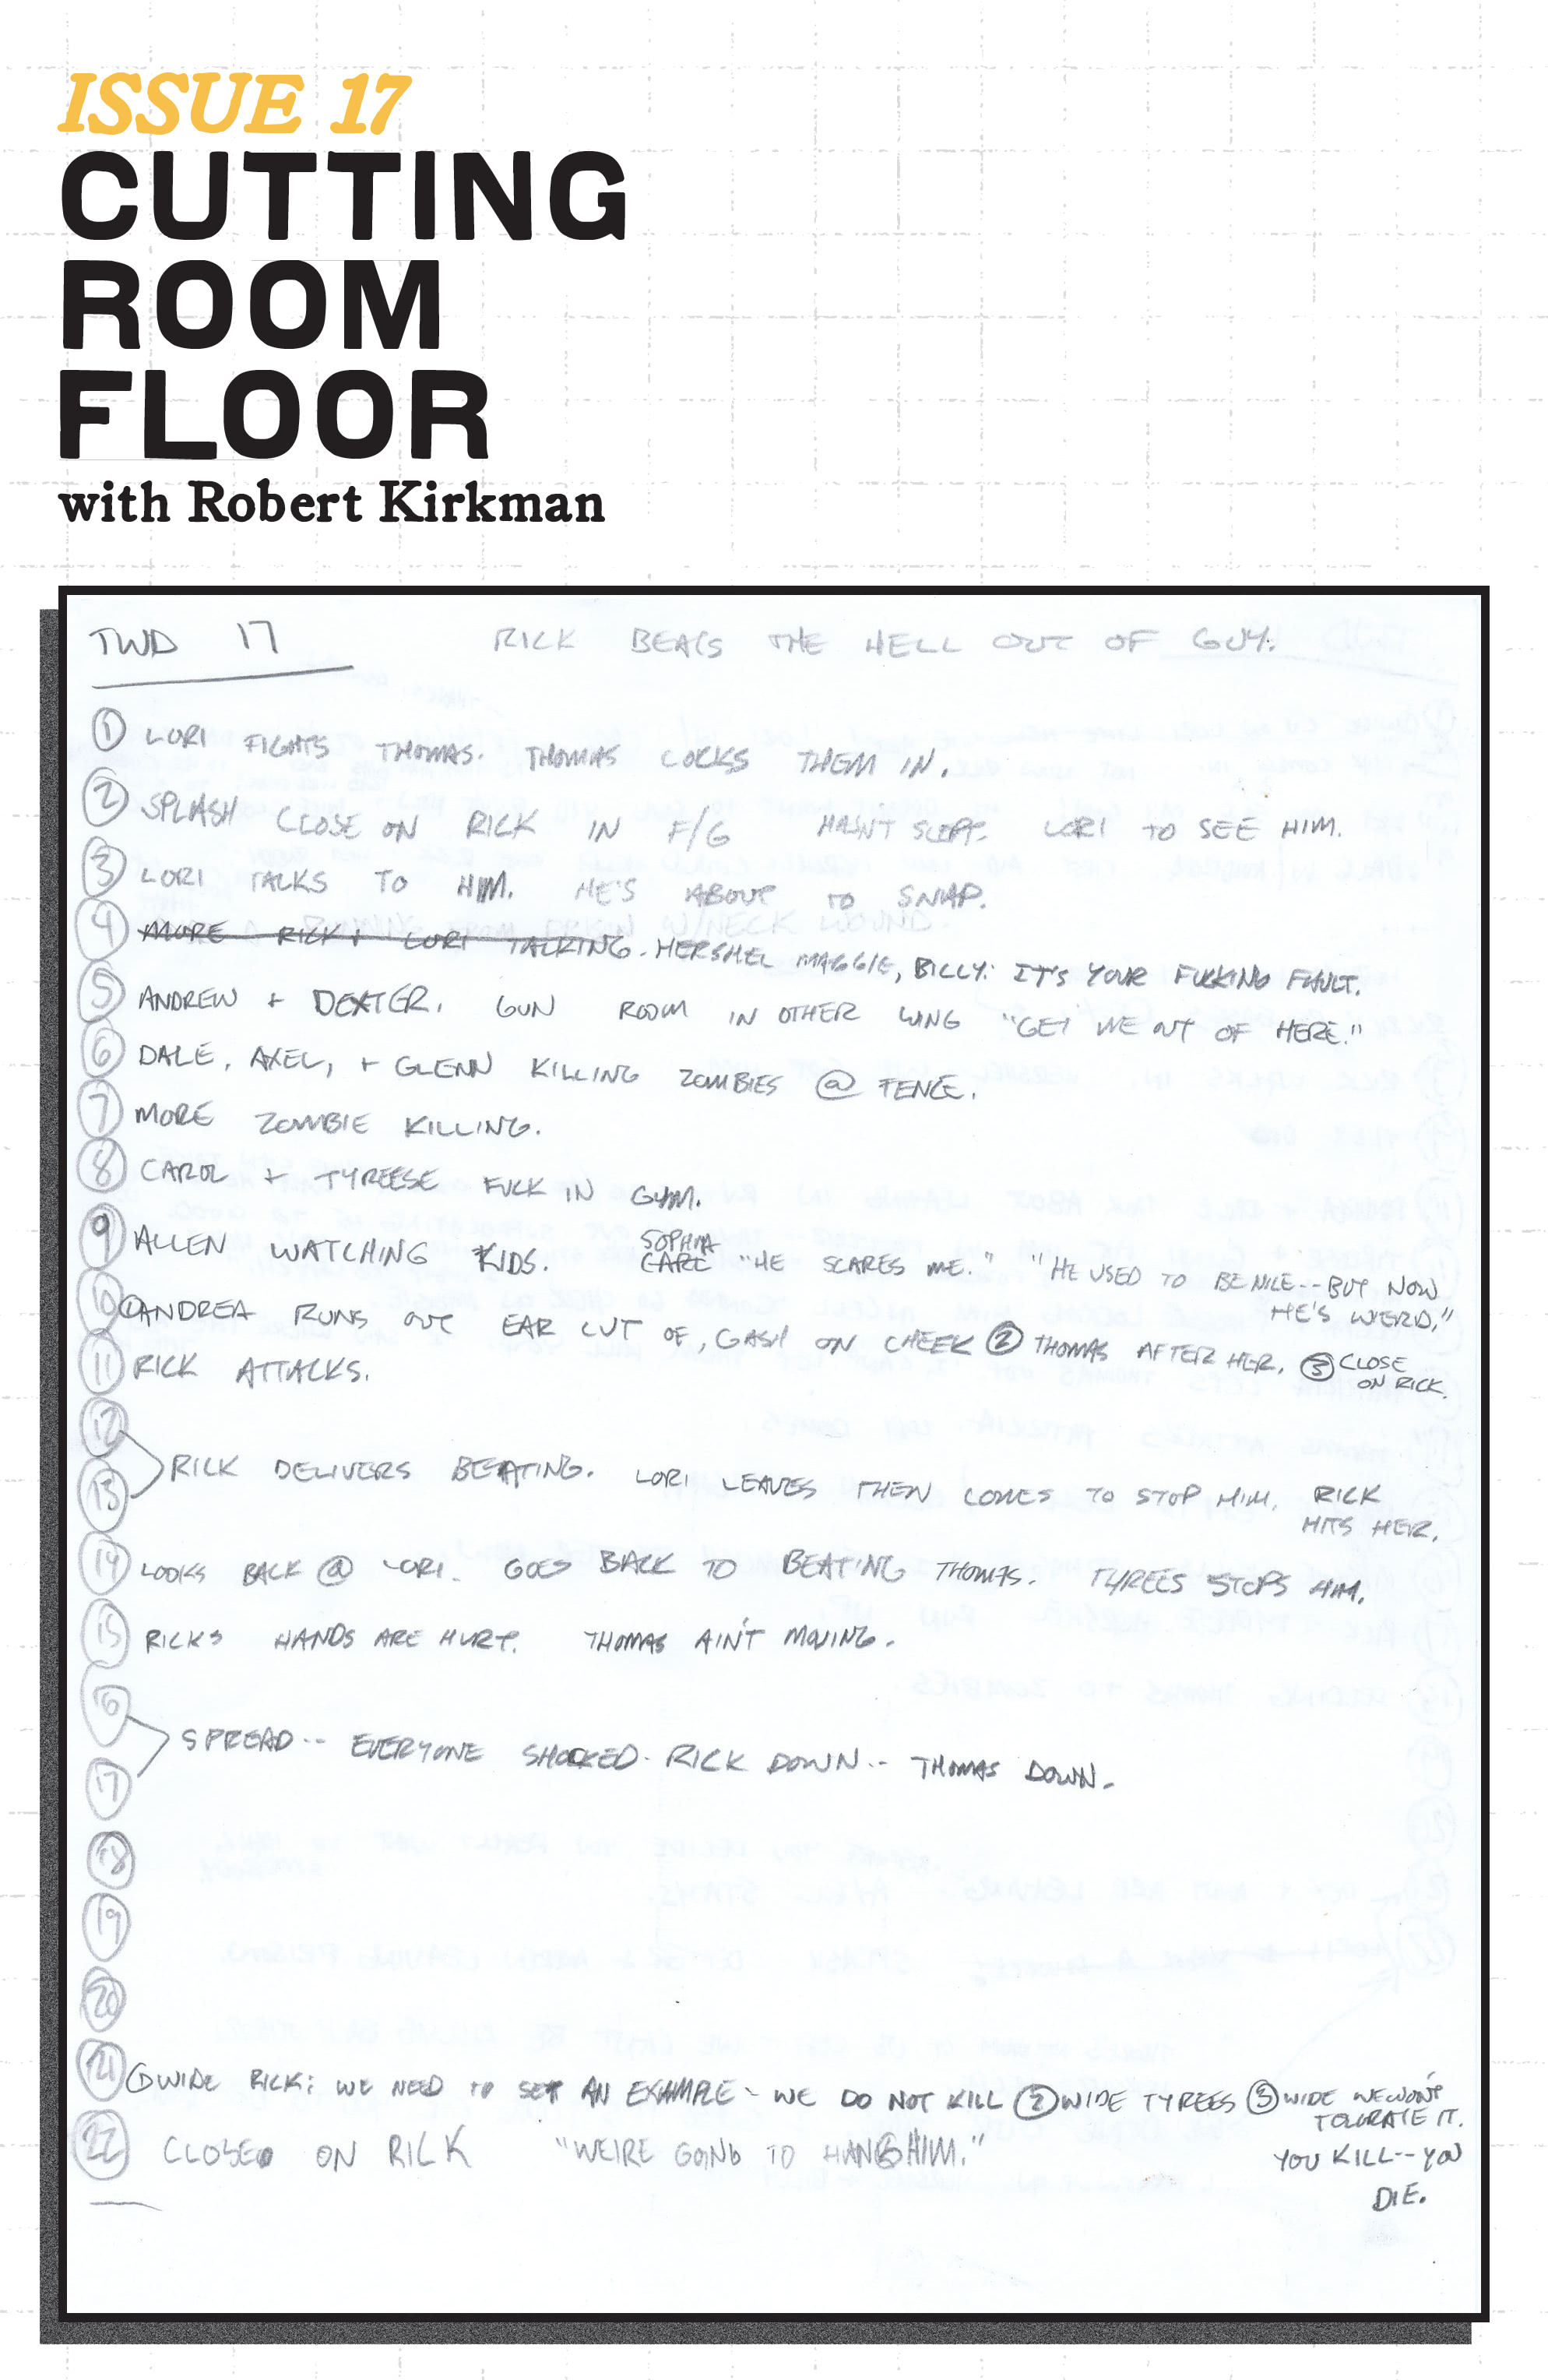 ISSUE 17
CUTTING
ROOM
FLOOR
with Robert Kirkman
TWD 17 RICK BEATS THE HELL OUT OF GUY.
① LORI FIGHTS THOMAS. THOMAS LOCKS THEM IN.
② SPLASH CLOSE ON RICK IN F/G HASN'T SLEPT. LORI TO SEE HIM.
③ LORI TALKS TO HIM. HE'S ABOUT TO SNAP.
④ MORE RICK + LORI TALKING. HERSHEL MAGGIE, BILLY: IT'S YOUR FUCKING FAULT.
⑤ ANDREW + DEXTER. GUN ROOM IN OTHER WING "GET ME OUT OF HERE."
⑥ DALE, AXEL, + GLENN KILLING ZOMBIES @ FENCE.
⑦ MORE ZOMBIE KILLING.
⑧ CAROL + TYREESE FUCK IN GYM.
⑨ ALLEN WATCHING KIDS. SOPHIA CARL "HE SCARES ME." "HE USED TO BE NICE-- BUT NOW
HE'S WEIRD."
⑩ ① ANDREA RUNS OUT EAR CUT OF, GASH ON CHEEK ② THOMAS AFTER HER. ③ CLOSE
ON RICK.
⑪ RICK ATTACKS.
⑫
⑬ RICK DELIVERS BEATING. LORI LEAVES THEN COMES TO STOP HIM. RICK
HITS HER.
⑭ LOOKS BACK @ LORI. GOES BACK TO BEATING THOMAS. TYREES STOPS HIM.
⑮ RICKS HANDS ARE HURT. THOMAS AIN'T MOVING.
⑯
⑰ SPREAD-- EVERYONE SHOCKED. RICK DOWN-- THOMAS DOWN.
⑱
⑲
⑳
㉑ ① WIDE RICK: WE NEED TO SET AN EXAMPLE - WE DO NOT KILL ② WIDE TYREES ③ WIDE WE WON'T
TOLORATE IT.
YOU KILL-- YOU
DIE.
㉒ CLOSE ON RICK "WE'RE GOING TO HANG HIM."